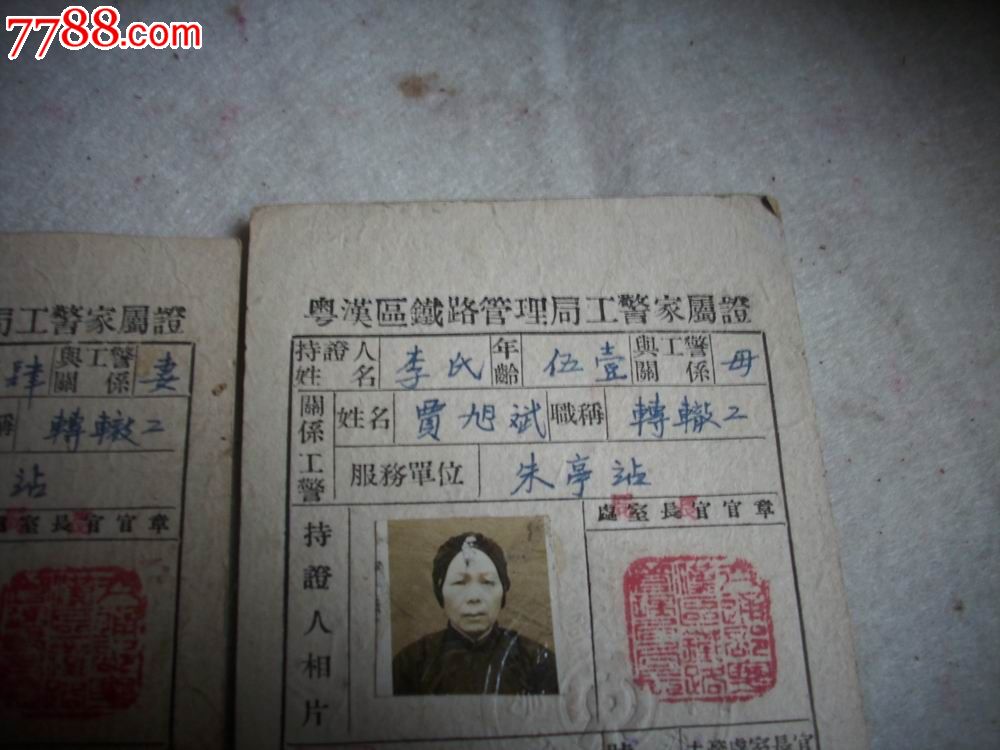 7788.com
局工警家屬證
肆 與工警關係 妻
稱 轉轍工
站
處室長官官章
粵漢區鐵路管理局工警家屬證
持證人姓名 李氏 年齡 伍壹 與工警關係 母
關係工警 姓名 賈旭斌 職稱 轉轍工
服務單位 朱亭站
持證人相片
處室長官官章